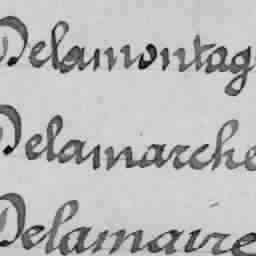 Delamontag
Delamarche
Delamaire